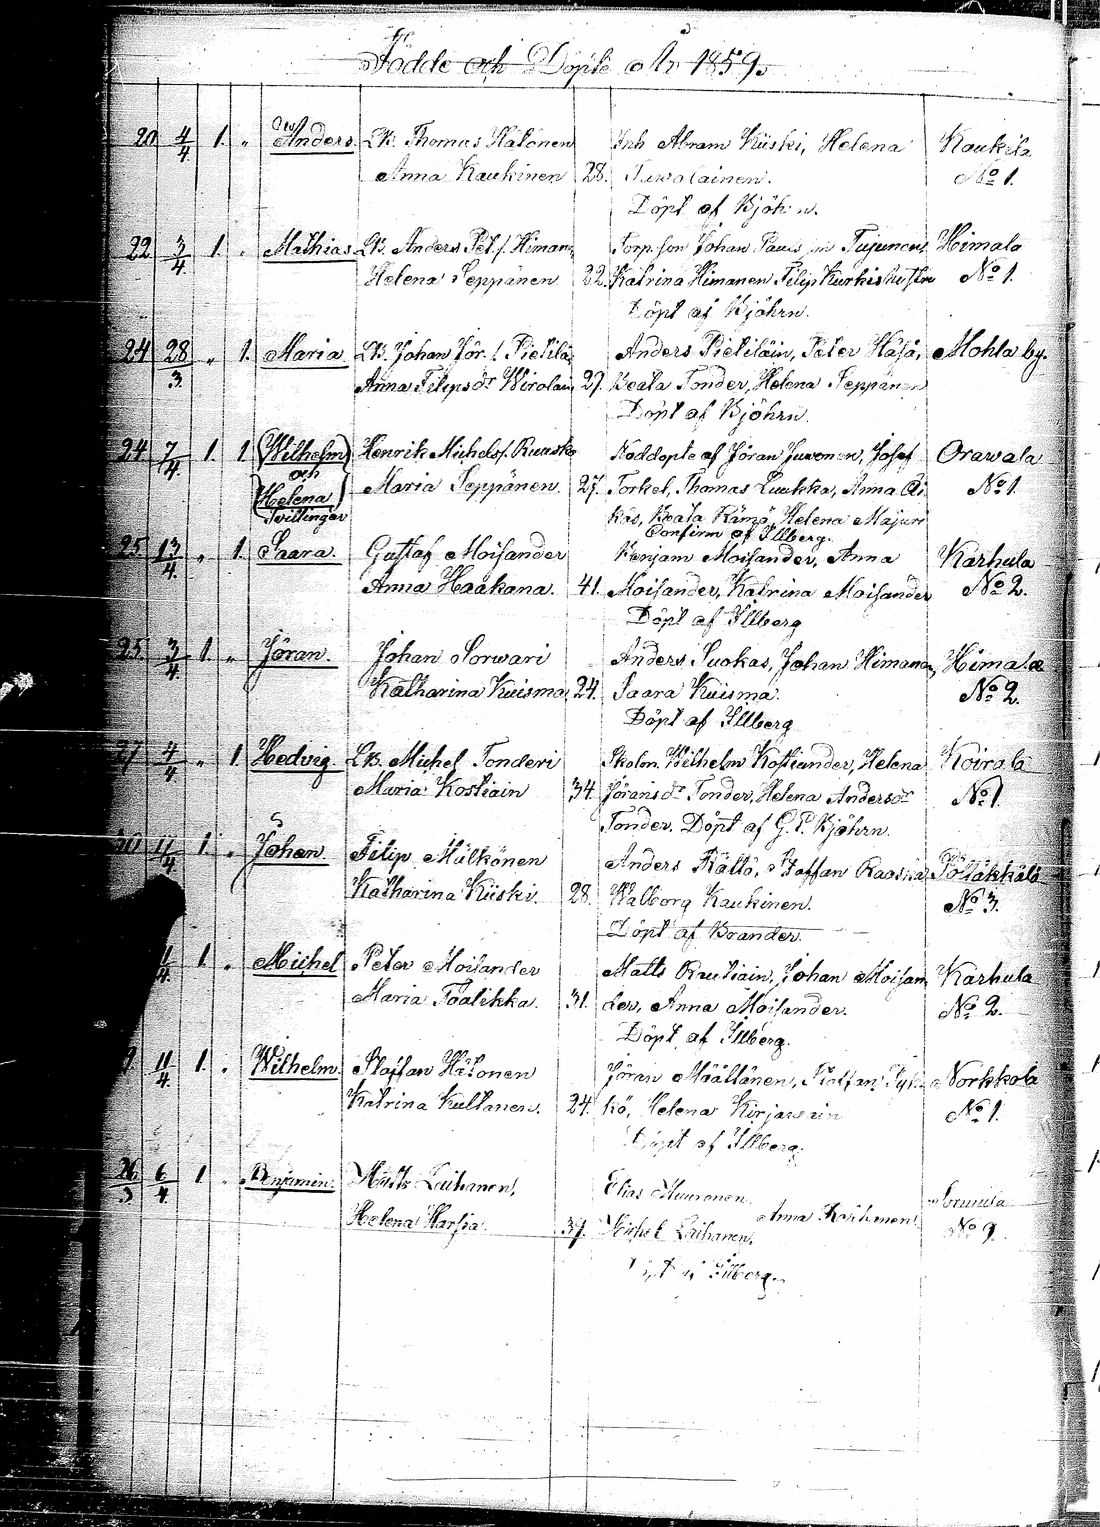 Födde och Döpte År 1859.
20 4/4 1. " Anders. LB. Thomas Hätönen Inh Abram Kiiski, Helena Kaukila
Anna Kaukinen 28. Suwolainen. No 1.
Döpt af Bjöhrn.
22 3/4 1. " Mathias. LB. Anders Pet.s. Himan Torp. son Johan Tujunen, Himala
Helena Seppänen 22. Katrina Himanen Filip Kurkis hustru No 1.
Döpt af Bjöhrn.
24 28/3 " 1. Maria LB. Johan Jör.s. Pietilä Anders Pietiläin, Peter Häsä, Mohla by.
Anna Filipsdr Wirolain 27. Beata Tonder, Helena Seppänen
Döpt af Bjöhrn.
24 7/4 1. 1 Wilhelm Henrik Michels. Ruusko Noddöpte af Jöran Juwonen, Josef Orawala
och
Helena Maria Seppänen. 27. Torkel, Thomas Luukka, Anna Ri No 1
Tvillingar käs, Beata Rämö, Helena Majuri
Confirm af Illberg.
25 13/4 " 1. Saara. Gustaf Moisander Benjam Moisander, Anna Karhula
Anna Haakana. 41. Moisander, Katrina Moisander No 2.
Döpt af Illberg
25. 3/4 1. " Jöran. Johan Sorwari Anders Suokas, Johan Himanen, Himala
Katharina Kuisma 24. Saara Kuisma. No 2.
Döpt af Illberg
27 4/4 " 1. Hedvig LB. Michel Tonderi Skolm. Wilhelm Kostiander, Helena Koirala
Maria Kostiain 34. Jöransdr Tonder, Helena Andersdr No 1
Tonder. Döpt af G. P. Bjöhrn.
17/4 1. " Johan Filip Mälkönen Anders Rättö, Staffan Raaska
Katharina Kiiski. 28. Walborg Kaukinen. No 3.
Döpt af Brander.
1/4 1. " Michel Peter Moisander Matts Rautiain, Johan Moisan Karhula
Maria Taalikka. 31. der, Anna Moisander. No 2.
Döpt af Illberg.
9. 11/4 1. " Wilhelm. Staffan Hätönen Jöran Määttänen, Staffan Tyk Norkkola
Katrina Kultanen. 24. kö, Helena Kirjawain No 1.
Döpt af Illberg.
26/3 6/4 1 " Benjamin. Matts Laihanen, Elias Muuronen.
Helena Harsia 39. Michel Laihanen, Anna Kaihonen No 9.
Döpt af Illberg.